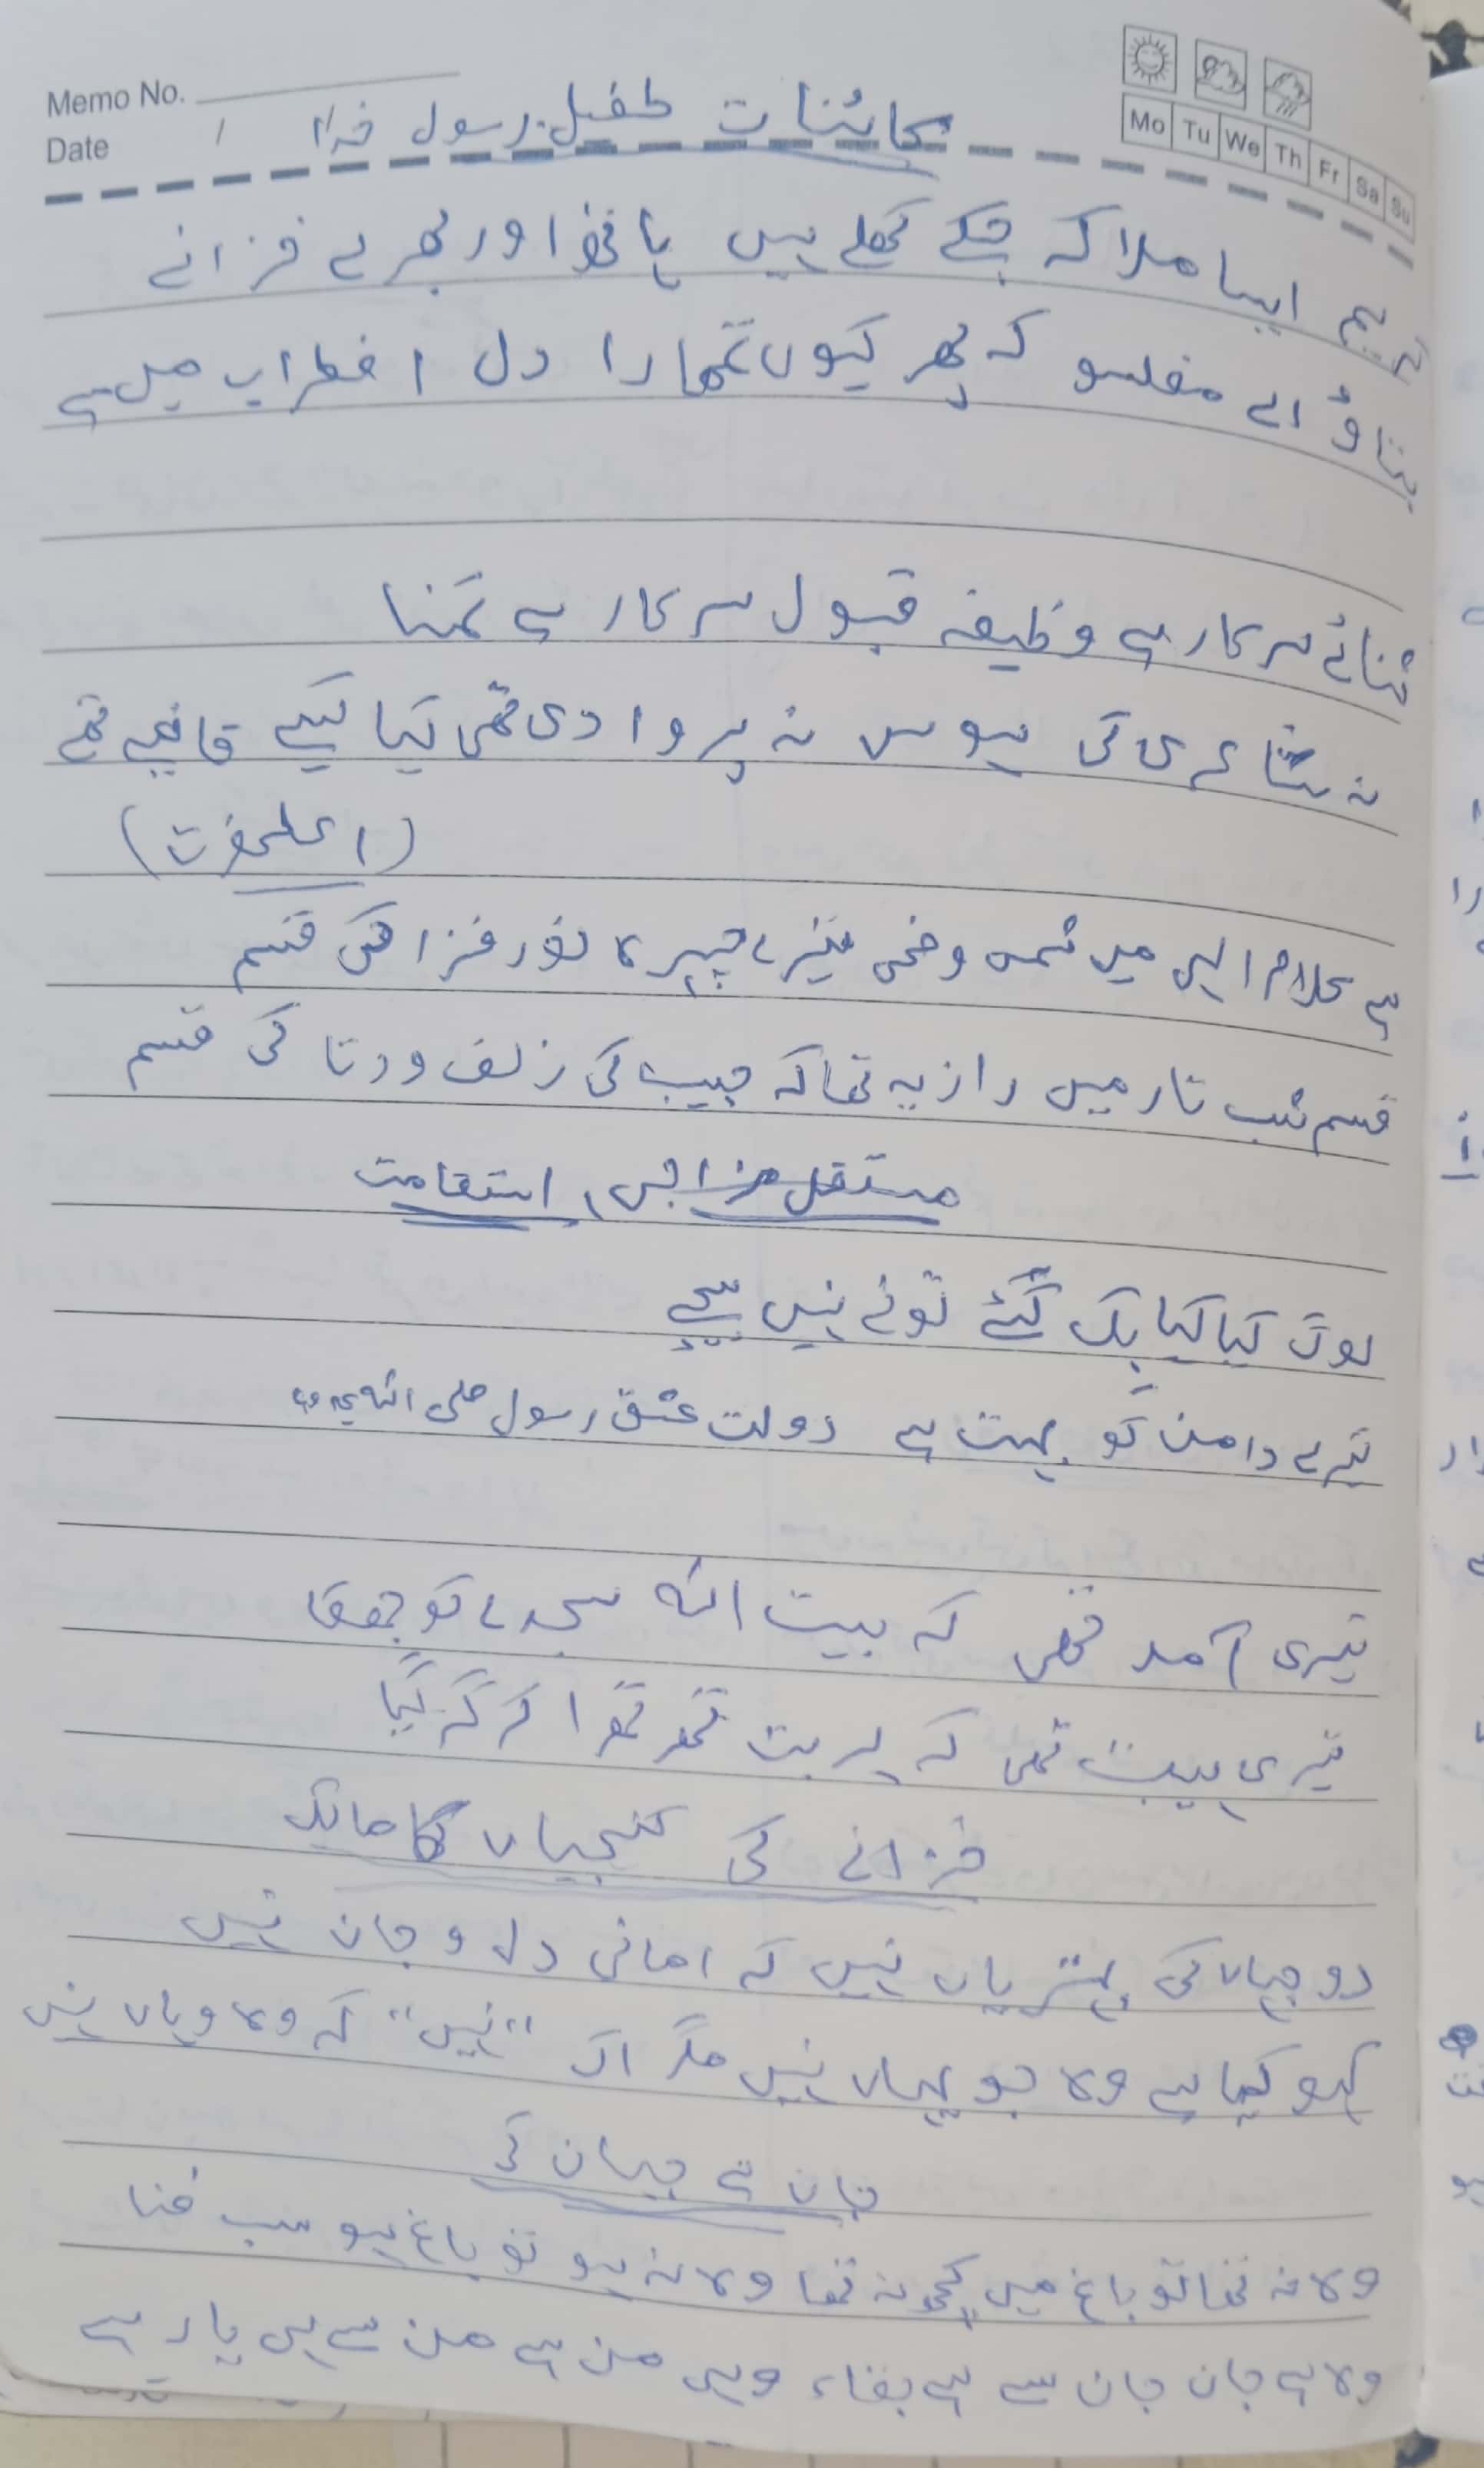 Memo No.
Date
Mo Tu We Th Fr Sa Su
کائنات طفیل رسول خدا
کریم ایسا ملا کہ جسکے کھلے ہیں ہاتھ اور بھرے خزانے
بتاؤ اے مفلسو کہ پھر کیوں تمھارا دل اضطراب میں ہے
ثنائے سرکار ہے وظیفہ قبول سرکار ہے تمنا
نہ شاعری کی ہوس نہ پروا ردی تھی کیا کیسے قافیے تھے
(اعلحضرت)
ہے کلام الہی میں شمس وضحی تیرے چہرہ نور فزا کی قسم
قسم شب تار میں راز یہ تھا کہ حبیب کی زلف دوتا کی قسم
مستقل مزاجی، استقامت
لوگ کیا کیا بک گئے تونے نہیں بیچے
تیرے دامن کو بہت ہے دولت عشق رسول صلی اللہ علیہ وسلم
تیری آمد تھی کہ بیت اللہ سجدے کو جھکا
تیری ہیبت تھی کہ ہر بت تھر تھرا کر گر گیا
خزانے کی کنجیاں کا مالک
دو جہاں کی بہتریاں نہیں کہ امانی دل و جان نہیں
کہو کیا ہے وہ جو یہاں نہیں مگر اک "نہیں" کہ وہ وہاں نہیں
جان ہے جہان کی
وہ نہ تھا تو باغ میں کچھ نہ تھا وہ نہ ہو تو باغ ہو سب فنا
وہ ہے جان جان سے ہے بقاء وہی بن ہے بن سے ہی بار ہے